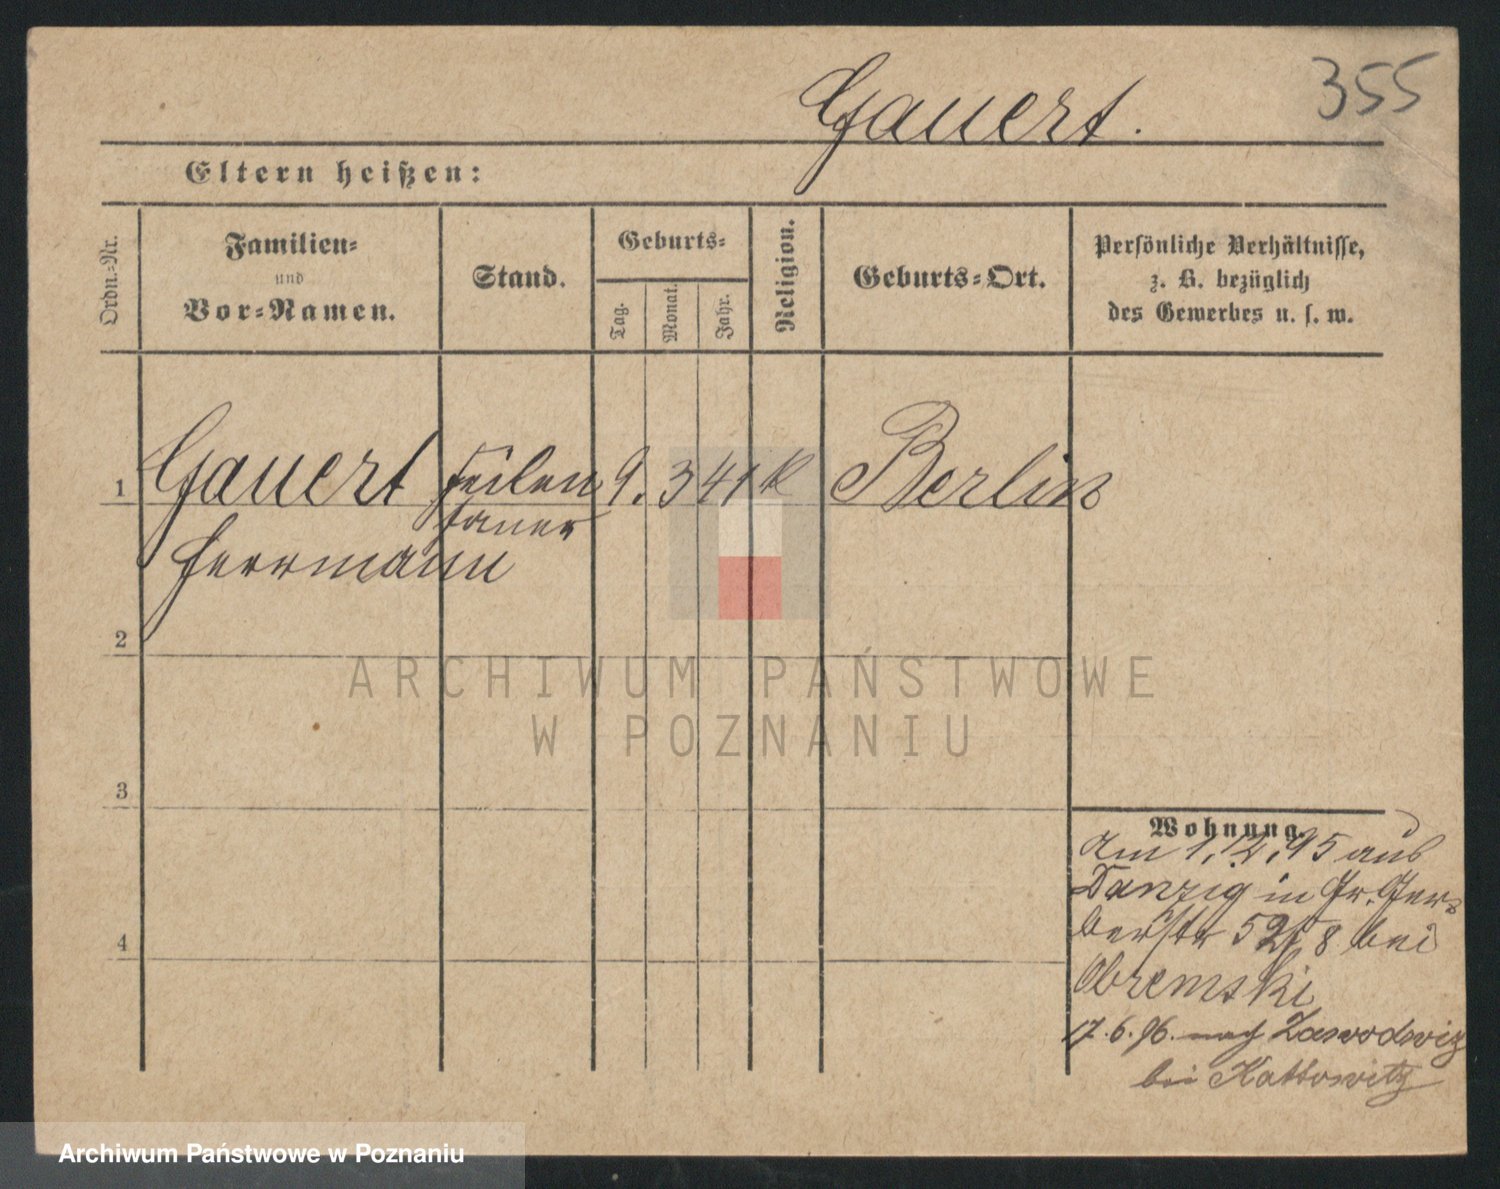 355
Gauert.
Eltern heißen:
Ordn.=Nr.
Familien=
und
Vor=Namen.
Stand.
Geburts=
Tag.
Monat.
Jahr.
Religion.
Geburts=Ort.
Persönliche Verhältnisse,
z. B. bezüglich
des Gewerbes u. s. w.
1 Gauert Feilen 9. 3 41 k Berlin
hauer
Herrmann
2
ARCHIWUM PAŃSTWOWE
W POZNANIU
3
Wohnung.
Am 1.12.95 aus
Danzig in Gr. Ger=
berstr 52 8 bei
Obremski
4
17.6.96. nach Zawodzie
bei Kattowitz
Archiwum Państwowe w Poznaniu